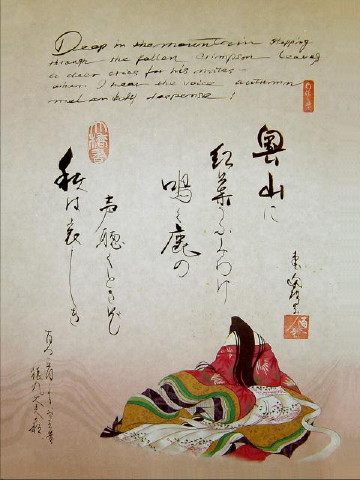 Deep in the mountain stepping
through the fallen crimson leaves
a deer cries for his mates -
when I hear the voice autumn
melancholy deepens!
奥山に
紅葉ふみわけ
鳴く鹿の
声聴くときぞ
秋は哀しき